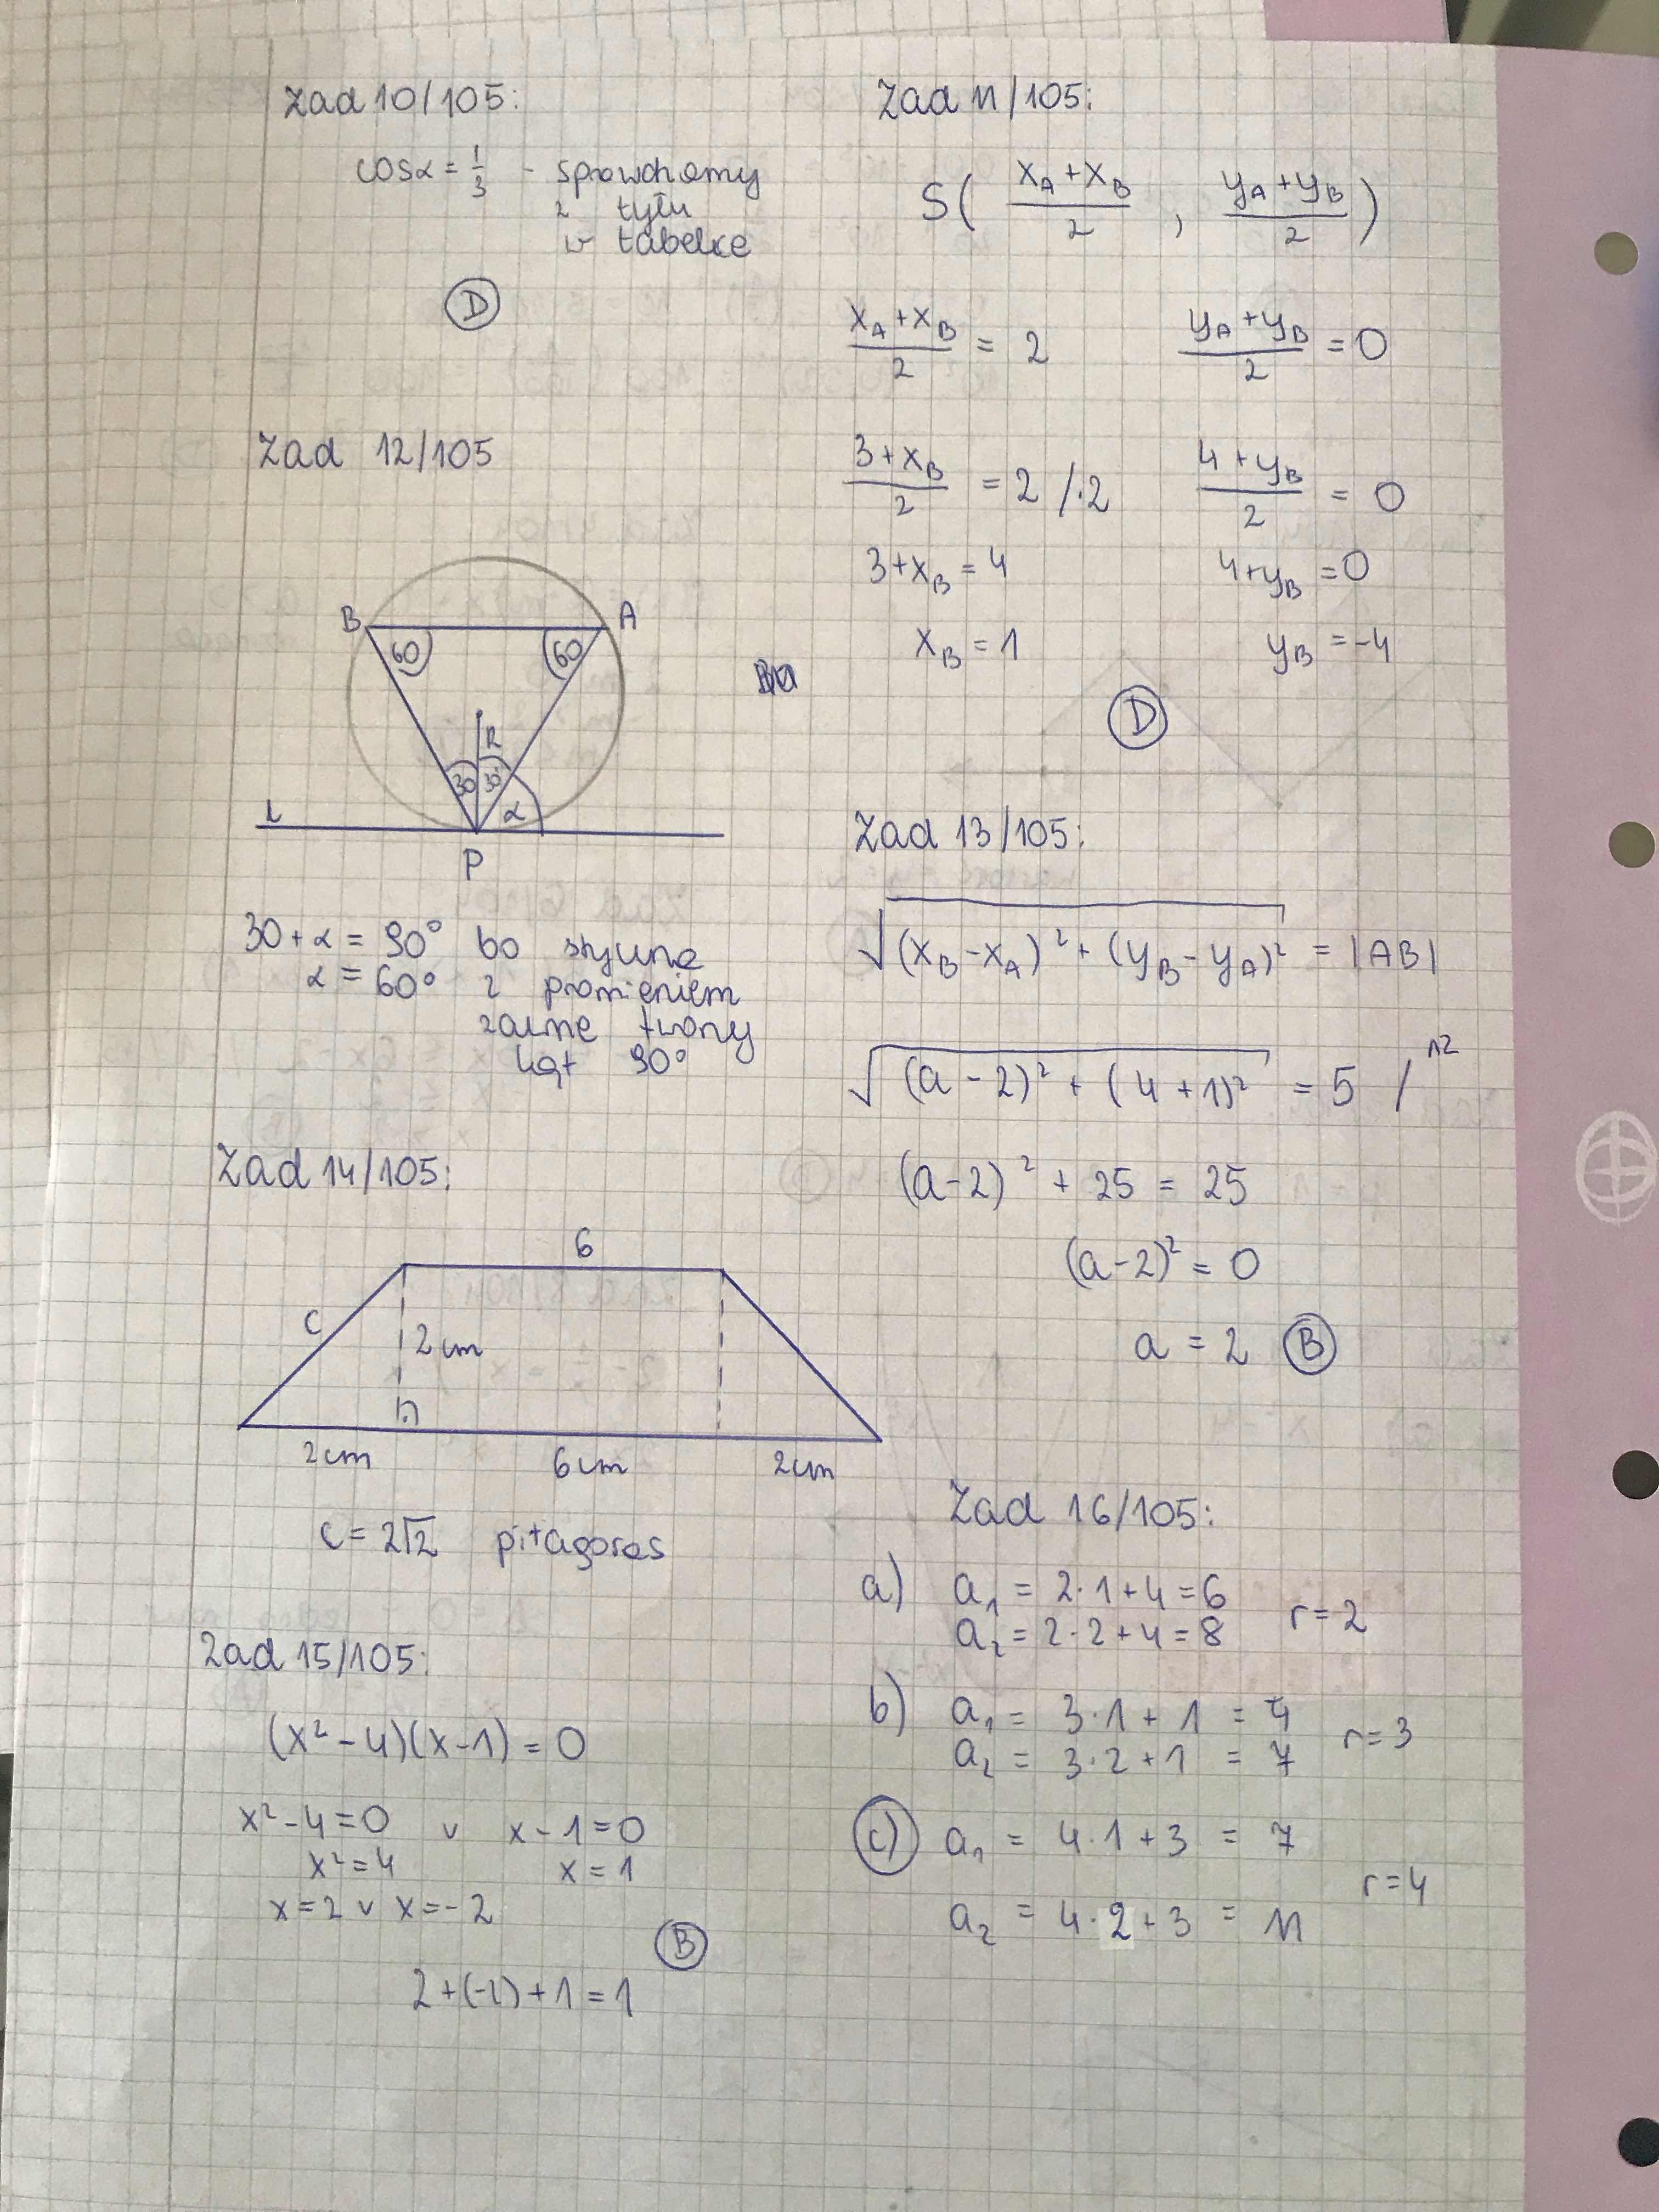 Zad 10/105:
cosα = 1/3 - sprawdzamy
z tyłu
w tabelce
D
Zad 11/105:
S( (x_A + x_B)/2 , (y_A + y_B)/2 )
(x_A + x_B)/2 = 2
(y_A + y_B)/2 = 0
(3 + x_B)/2 = 2 /·2
(4 + y_B)/2 = 0
3 + x_B = 4
4 + y_B = 0
x_B = 1
y_B = -4
D
Zad 12/105
B
A
60
60
R
30
30°
α
L
P
30 + α = 90° bo styczna
α = 60° z promieniem
zawsze tworzy
kąt 90°
Zad 13/105:
√((x_B - x_A)² + (y_B - y_A)²) = |AB|
√((a - 2)² + (4 + 1)²) = 5 /^2
(a - 2)² + 25 = 25
(a - 2)² = 0
a = 2 B
Zad 14/105:
6
c
2 cm
2 cm
6 cm
2 cm
c = 2√2 pitagoras
Zad 15/105:
(x² - 4)(x - 1) = 0
x² - 4 = 0 v x - 1 = 0
x² = 4
x = 1
x = 2 v x = -2
B
2 + (-2) + 1 = 1
Zad 16/105:
a) a₁ = 2·1 + 4 = 6
a₂ = 2·2 + 4 = 8
r = 2
b) a₁ = 3·1 + 1 = 4
a₂ = 3·2 + 1 = 7
r = 3
c) a₁ = 4·1 + 3 = 7
a₂ = 4·2 + 3 = 11
r = 4